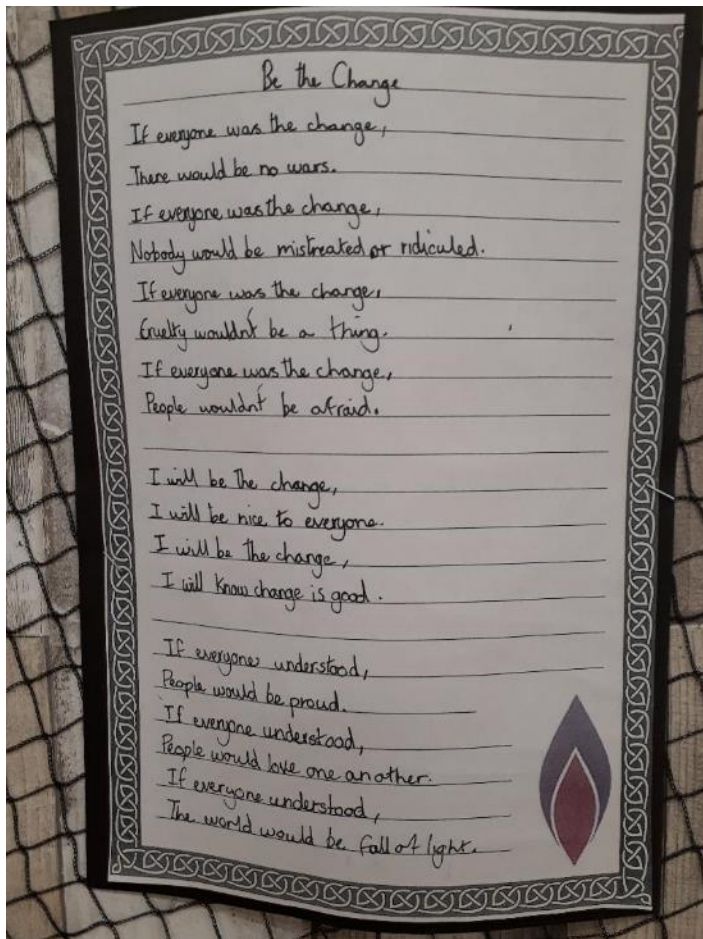 Be the Change
If everyone was the change,
There would be no wars.
If everyone was the change,
Nobody would be mistreated or ridiculed.
If everyone was the change,
Cruelty wouldn't be a thing.
If everyone was the change,
People wouldn't be afraid.
I will be the change,
I will be nice to everyone.
I will be the change,
I will know change is good.
If everyone understood,
People would be proud.
If everyone understood,
People would love one another.
If everyone understood,
The world would be full of light.